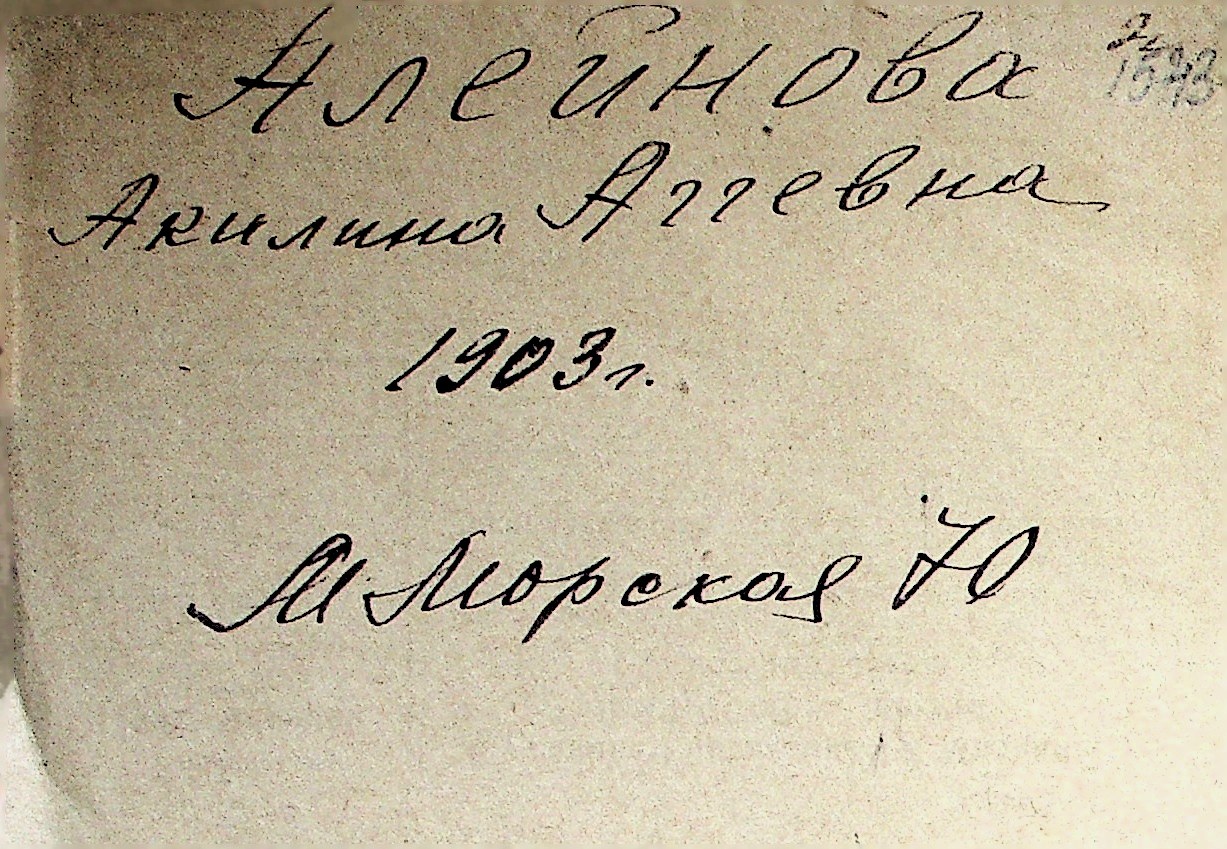 Алейнова
Акилина Аггевна
1903г.
М Морская 70